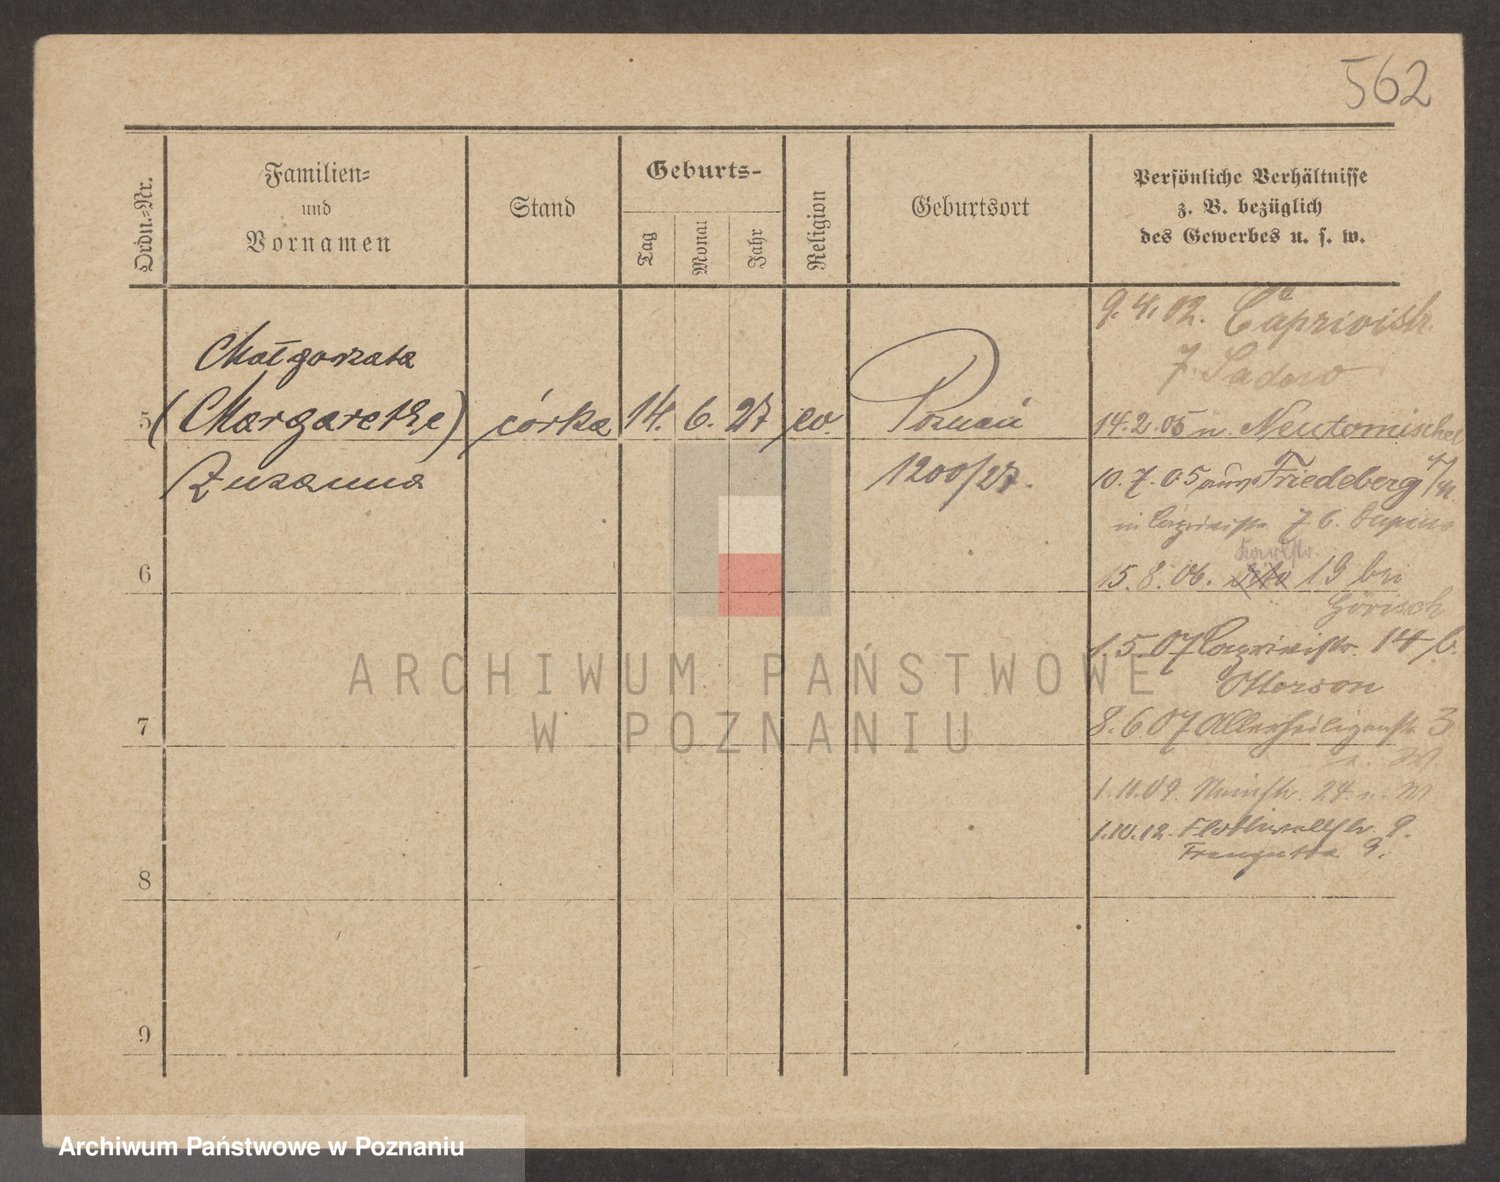 562
Ordn.-Nr.
Familien-
und
Vornamen
Stand
Geburts-
Tag
Monat
Jahr
Religion
Geburtsort
Persönliche Verhältnisse
z. B. bezüglich
des Gewerbes u. s. w.
9.4.02. Caprivistr.
7. Sadow
Małgorzata
5 (Margarethe) córka 14. 6. 27 ev. Poznań
Zuzanna
1200/27.
14.2.05 n. Neutomischel
10.7.05 aus Friedeberg
in Caprivistr. 7 b.
Karlstr.
6
15.8.06. 19 bei
Görisch
1.5.07 Caprivistr. 14 b.
Otterson
7
8.6.07 Allerheiligenstr. 3
1.11.09. 24. n. W
1.10.12. Flottwellstr. 9.
9.
8
9
ARCHIWUM PAŃSTWOWE
W POZNANIU
Archiwum Państwowe w Poznaniu